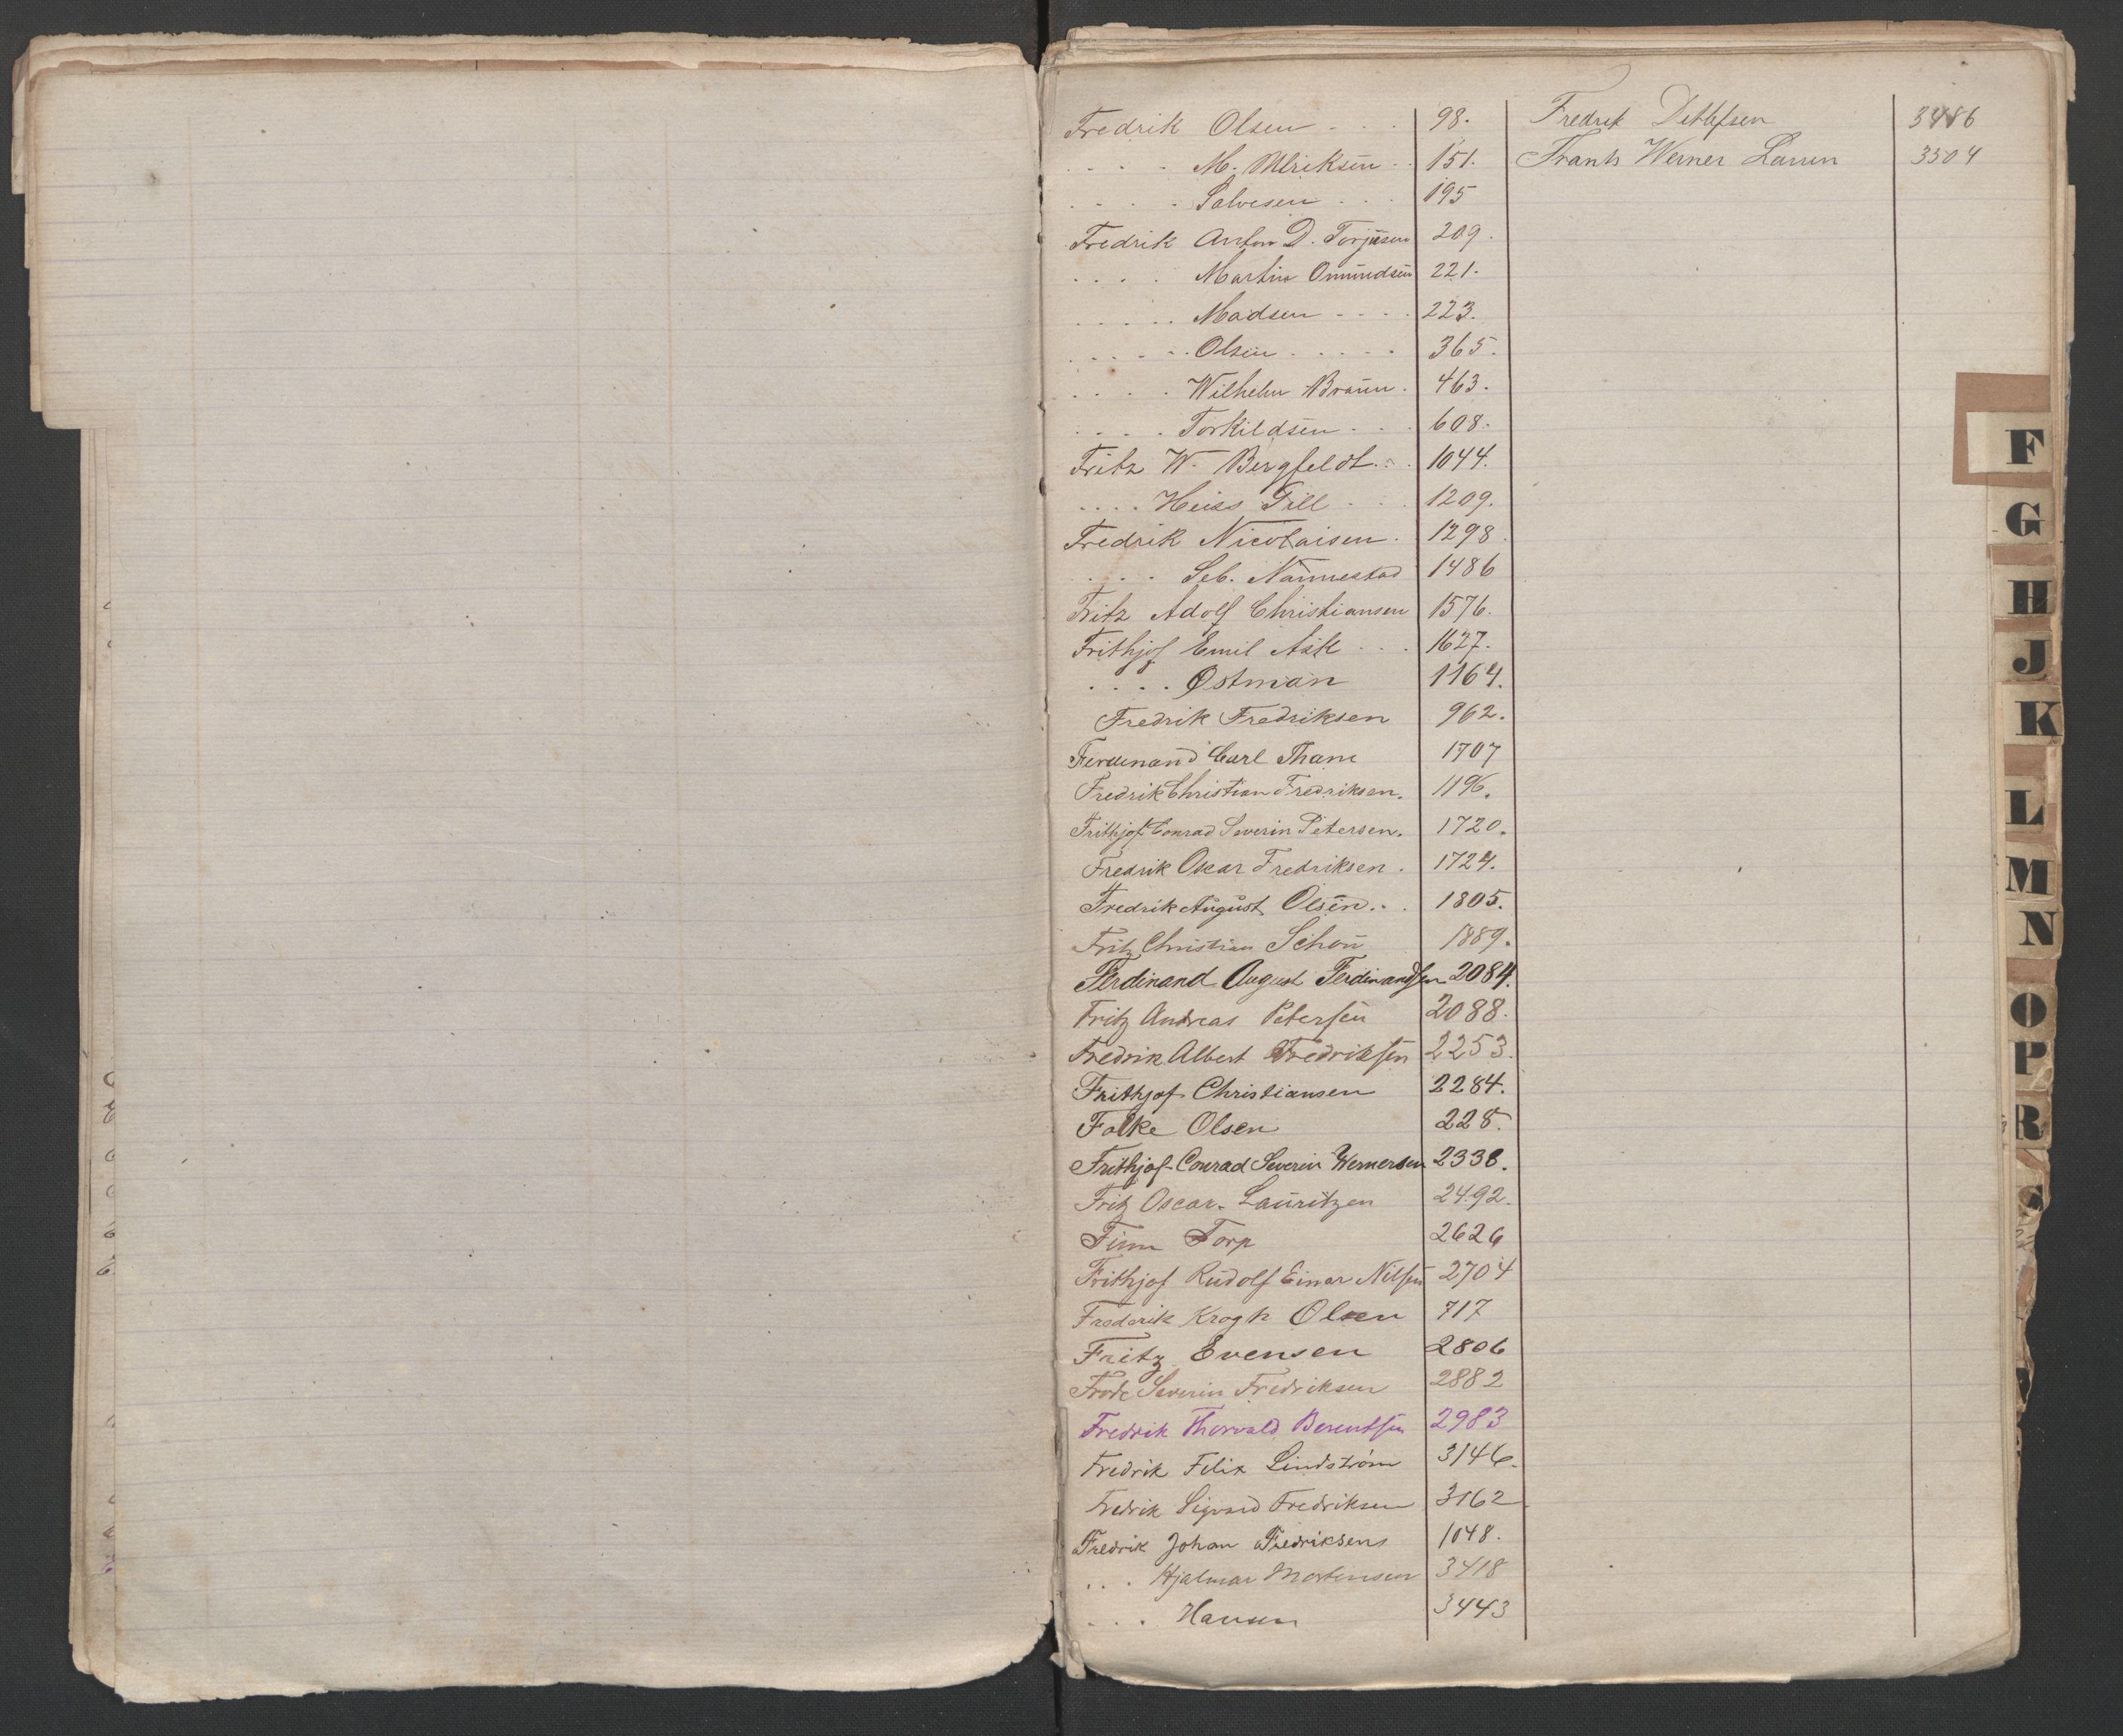 Fredrik Olsen - - - 98.
- - - - M. Ulriksen - - 151.
- - - - Salvesen - - - 195
Fredrik Anton D. Torjusen 209.
- - - - Martin Omundsen 221.
- - - - - Madsen - - - - 223.
- - - - - Olsen - - - - - 365.
- - - - Wilhelm Braun. 463.
- - - - Torkildsen - - - 608.
Fritz W. Bergfeldt. . . 1044.
. . . . Heiss Till - - - 1209.
Fredrik Nicolaisen. 1298.
- - - Seb. Nannestad 1486
Fritz Adolf Christiansen 1576.
Frithjof Emil Ask . . . 1627.
. . . . Østman 1164.
Fredrik Fredriksen 962.
Ferdinand Carl Tham 1707
Fredrik Christian Fredriksen. 1196.
Frithjof Conrad Severin Petersen. 1720.
Fredrik Oscar Fredriksen. 1724.
Fredrik August Olsen. . . 1805.
Fritz Christian Schou 1889.
Ferdinand August Ferdinandsen 2084.
Fritz Andreas Petersen 2088.
Fredrik Albert Fredriksen 2253.
Frithjof Christiansen 2284.
Falke Olsen 228.
Frithjof Conrad Severin Wernersen 2338.
Fritz Oscar Lauritzen 2492.
Finn Torp 2626
Frithjof Rudolf Einar Nilsen 2704
Frederik Krogh Olsen 717
Fritz Evensen 2806
Frode Severin Fredriksen 2882
Fredrik Thorvald Berentsen 2983
Fredrik Felix Lindstrøm 3146.
Fredrik Sigvard Fredriksen 3162
Fredrik Johan Fredriksens 1048.
. . . Hjalmar Mortensen 3418
. . . Hansen 3443
Fredrik Detlefsen 3486
Frants Werner 3504
F
G
H
J
K
L
M
N
O
P
R
S